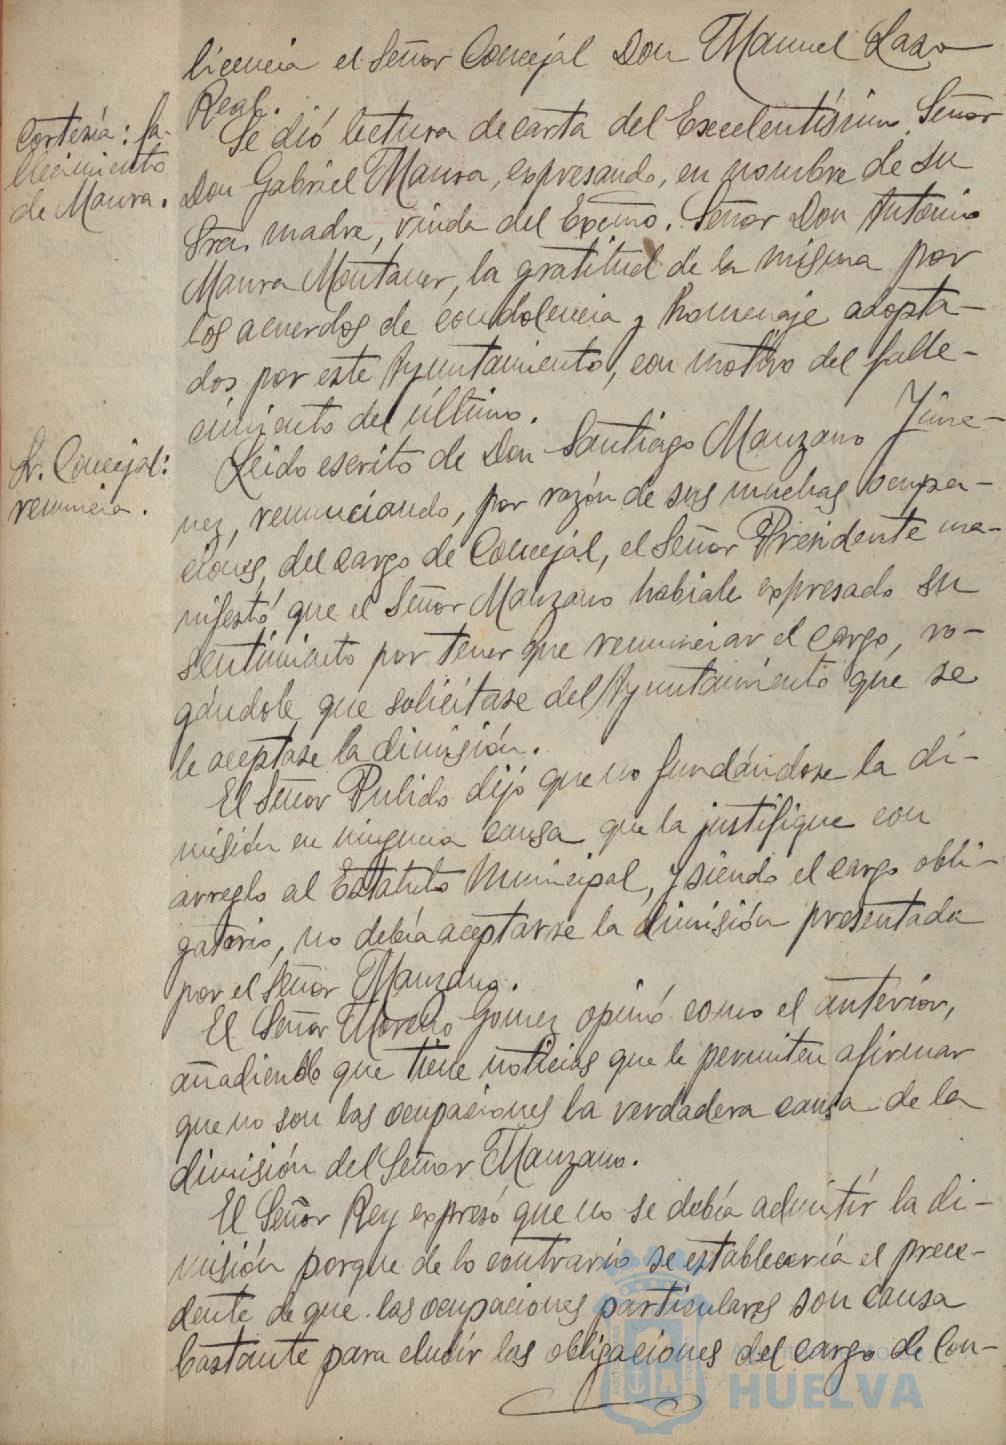 licencia el Señor Concejal Don Manuel Lazo
Real.
Cortesía: fa-
llecimiento
de Maura.
Se dió lectura de carta del Excelentísimo Señor
Don Gabriel Maura, expresando, en nombre de su
Sra. madre, viuda del Excmo. Señor Don Antonio
Maura Montaner, la gratitud de la misma por
los acuerdos de condolencia y homenaje adopta-
dos por este Ayuntamiento, con motivo del falle-
cimiento del último.
Sr. Concejal:
renuncia.
Leido escrito de Don Santiago Manzano Jime-
nez, renunciando, por razón de sus muchas ocupa-
ciones, del cargo de Concejal, el Señor Presidente ma-
nifestó que el Señor Manzano habiale expresado su
sentimiento por tener que renunciar el cargo, ro-
gándole que solicitase del Ayuntamiento que se
le aceptase la dimisión.
El Señor Pulido dijo que no fundándose la di-
misión en ninguna causa que la justifique con
arreglo al Estatuto Municipal, y siendo el cargo obli-
gatorio, no debía aceptarse la dimisión presentada
por el Señor Manzano.
El Señor Moreno Gomez opinó como el anterior,
añadiendo que tiene noticias que le permiten afirmar
que no son las ocupaciones la verdadera causa de la
dimisión del Señor Manzano.
El Señor Rey expresó que no se debía admitir la di-
misión porque de lo contrario se establecería el prece-
dente de que las ocupaciones particulares son causa
bastante para eludir las obligaciones del cargo de Con-
HUELVA